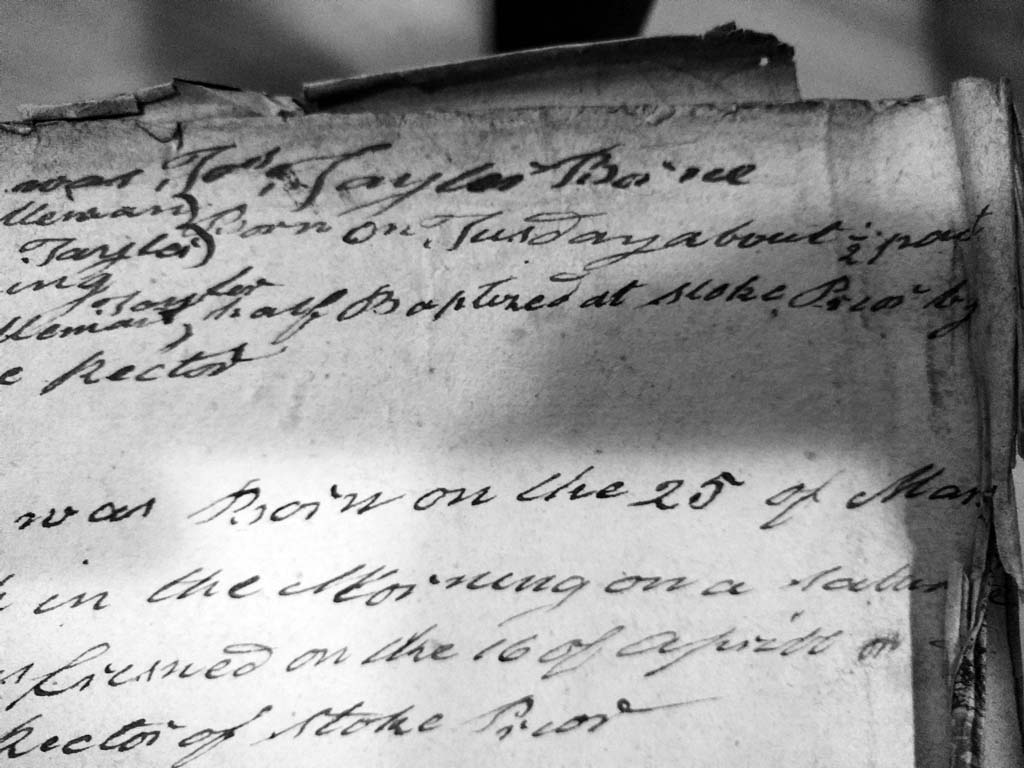 was, Jos, Taylor Borne
tleman)
Taylor) Born on Tusday about 1/2 past
ing
Taylor
tleman, half Baptized at Stoke Prior by
e Rector
was Born on the 25 of Mar
in the Morning on a Satur
firmed on the 16 of Aprill on
Rector of Stoke Prior